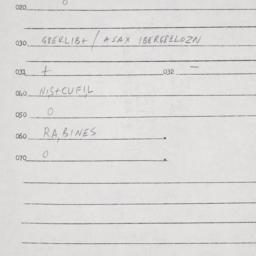 020 0
030 GBERLIBT / ASAX IBERGBELOZN
031 + 032 —
040 NISTCUFIL
050 0
060 RA,BINES
070 0